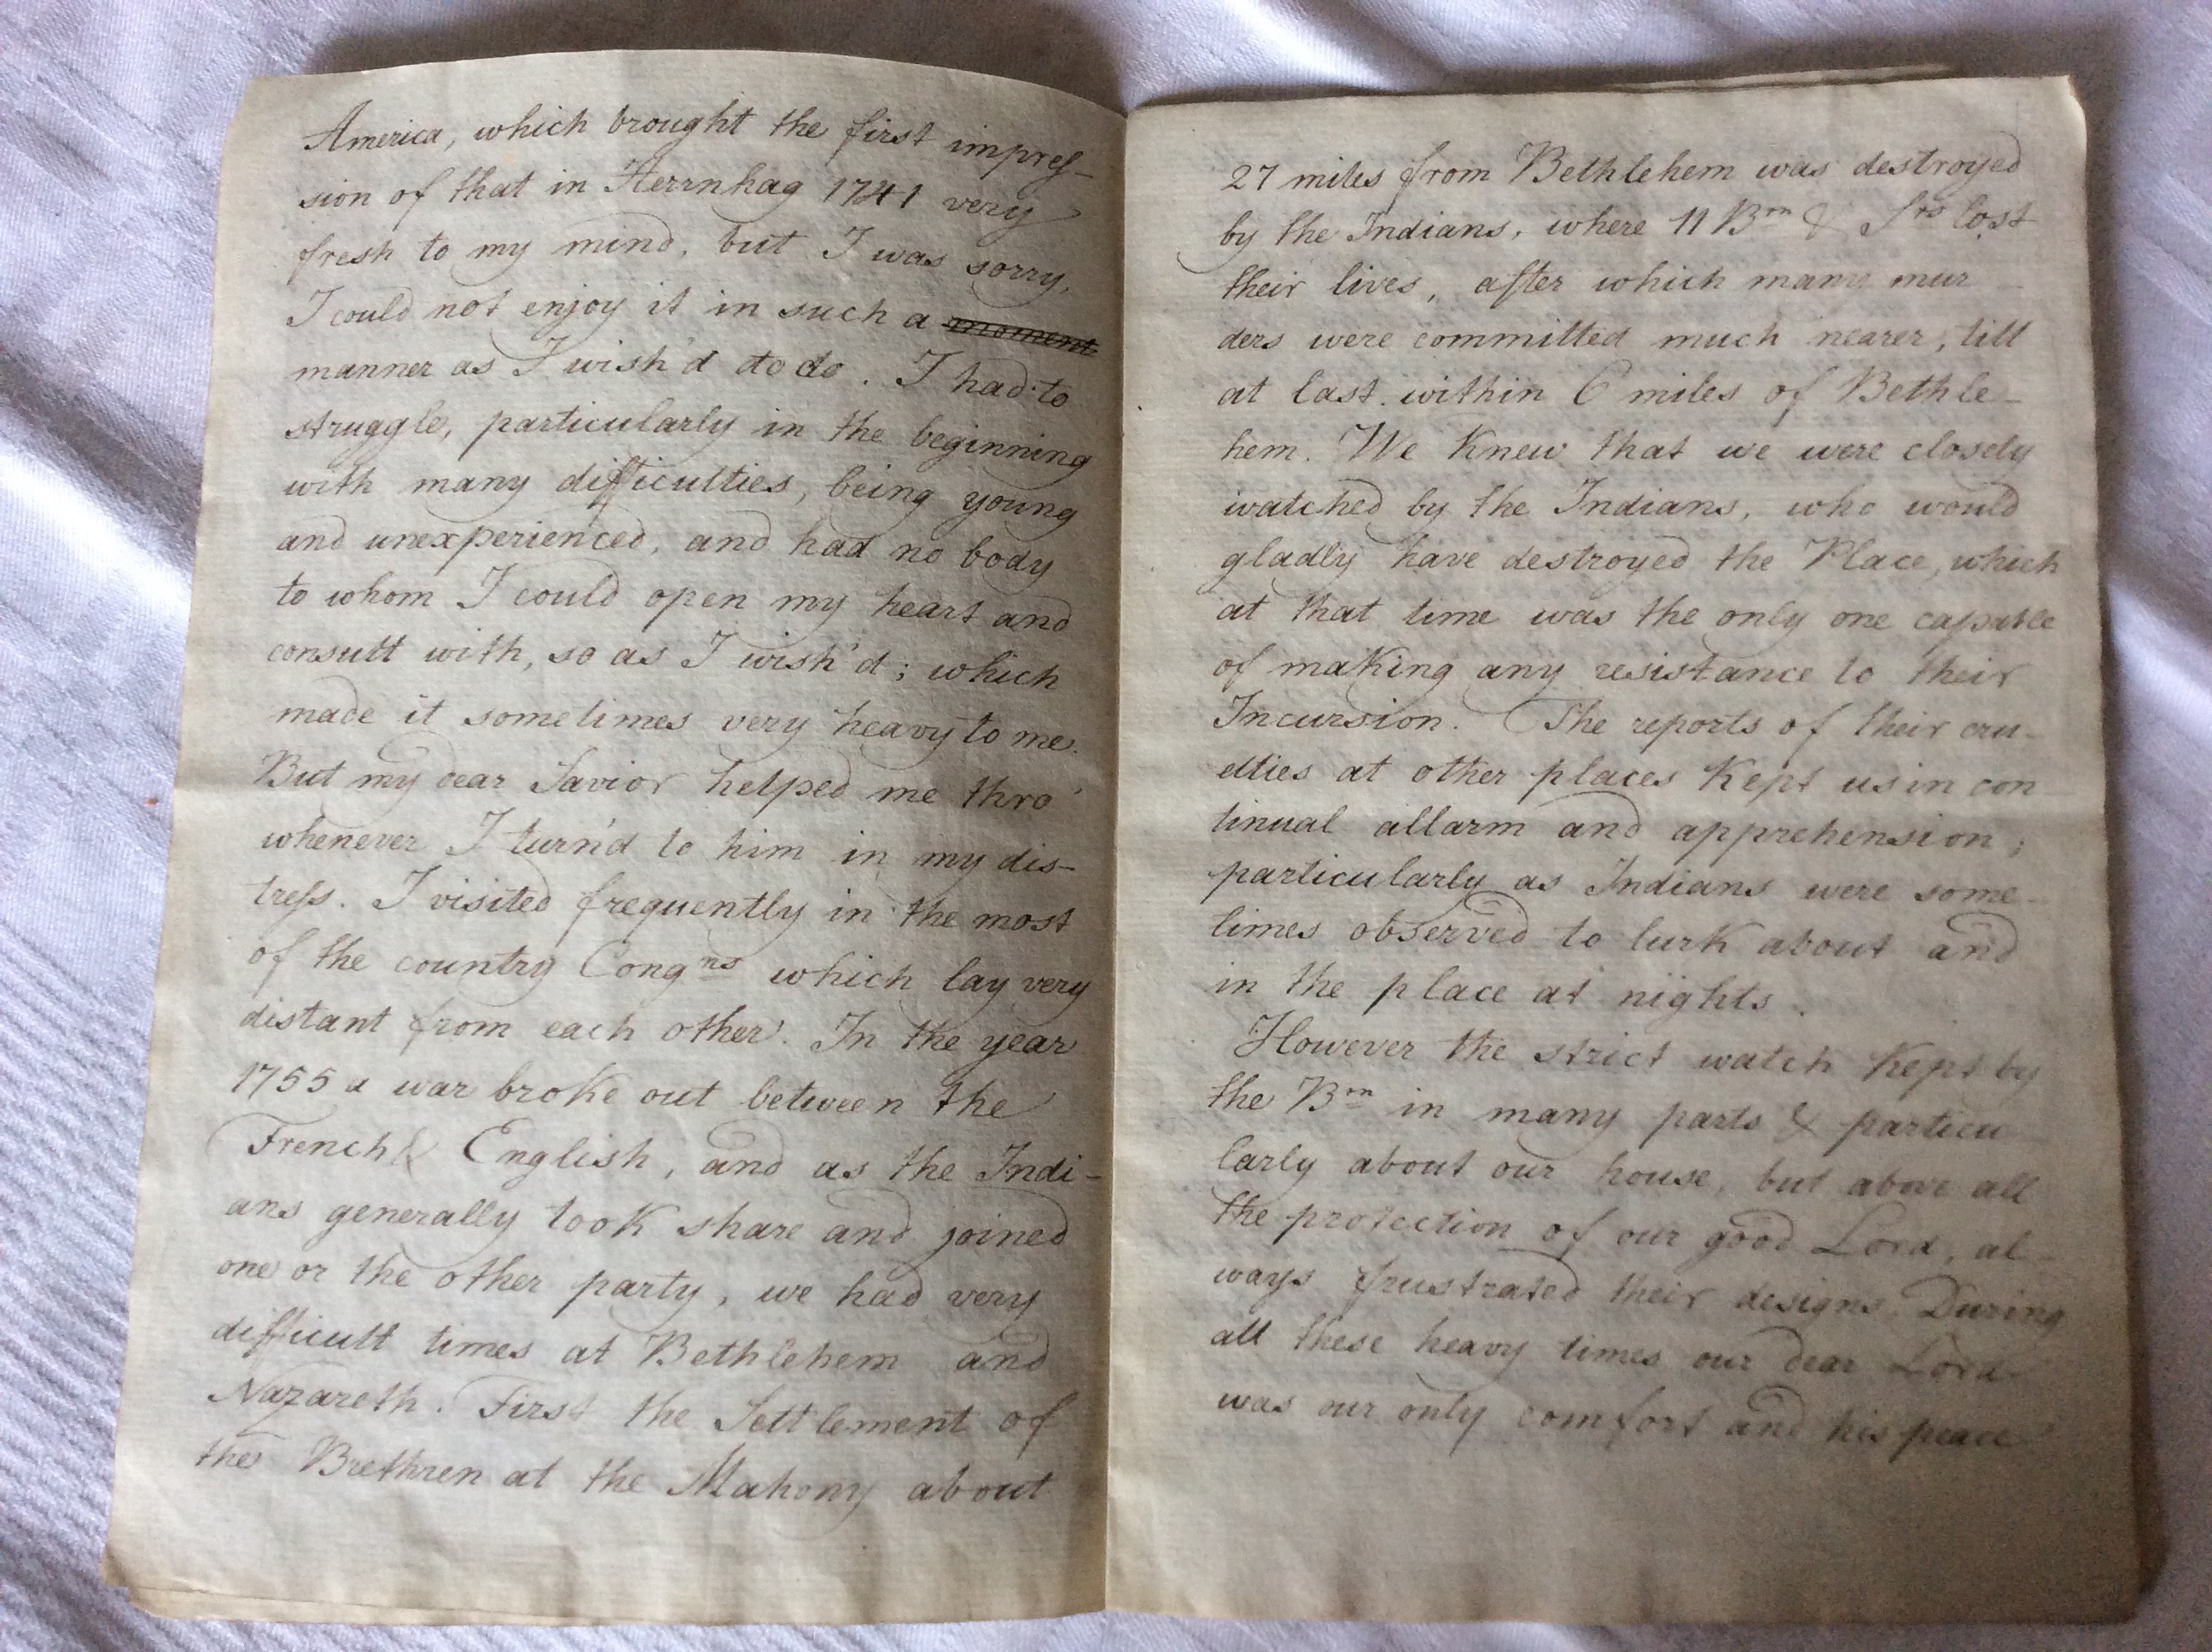 America, which brought the first impres-
sion of that in Herrnhag 1741 very
fresh to my mind, but I was sorry,
I could not enjoy it in such a moment
manner as I wish'd to do. I had to
struggle, particularly in the beginning
with many difficulties, being young
and unexperienced, and had no body
to whom I could open my heart and
consult with, so as I wish'd; which
made it sometimes very heavy to me.
But my dear Savior helped me thro'
whenever I turn'd to him in my dis-
tress. I visited frequently in the most
of the country Congns which lay very
distant from each other. In the year
1755 a war broke out between the
French & English, and as the Indi-
ans generally took share and joined
one or the other party, we had very
difficult times at Bethlehem and
Nazareth. First the Settlement of
the Brethren at the Mahony about
27 miles from Bethlehem was destroyed
by the Indians, where 11 Brn & Srs lost
their lives, after which many mur-
ders were committed much nearer, till
at last within 6 miles of Bethle-
hem. We Knew that we were closely
watched by the Indians, who would
gladly have destroyed the Place, which
at that time was the only one capable
of making any resistance to their
Incursion. The reports of their cru-
elties at other places Kept us in con
tinual allarm and apprehension;
particularly as Indians were some-
times observed to lurk about and
in the place at nights.
However the strict watch Kept by
the Brn in many parts & particu
larly about our house, but above all
the protection of our good Lord, al-
ways frustrated their designs. During
all these heavy times our dear Lord
was our only comfort and his peace